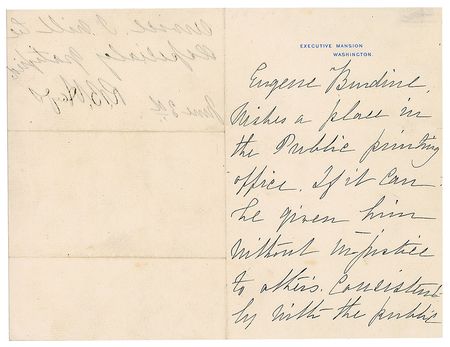 EXECUTIVE MANSION
WASHINGTON.
Eugene Burdine,
Wishes a place in
the Public printing
office. If it can
be given him
without injustice
to others. Consistent
ly with the public
service I will be
especially gratified
R B Hayes